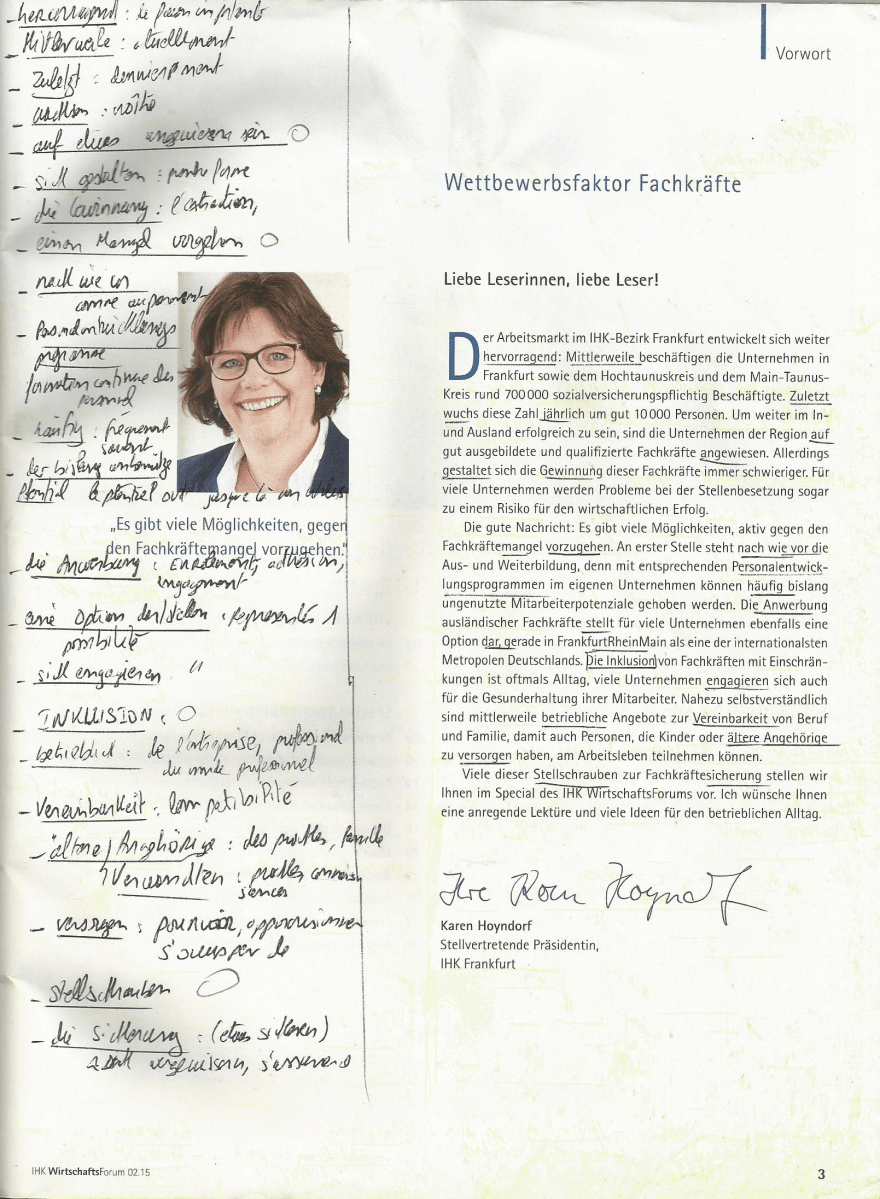 Vorwort
- hervorragend : de façon
- Mittlerweile : actuellement
- Zuletzt : dernièrement
- wachsen :
- auf etwas angewiesen sein
- sich gestalten : prendre forme
- die Gewinnung : l'extraction,
- einen Mangel vorgehen
- nach wie vor
comme auparavant
- Personalentwicklungs
programme
formation continue des
personnel
- häufig : fréquemment
souvent
- der bislang ungenutzte
Potential le potentiel jusque là
„Es gibt viele Möglichkeiten, gegen
den Fachkräftemangel vorzugehen.“
- die Anwerbung : Enrôlement, adhésion,
engagement
- eine Option darstellen : représenter 1
possibilité
- sich engagieren "
- INKLUSION :
- betrieblich : de l'entreprise, professionnel
du monde professionnel
- Vereinbarkeit : compatibilité
- ältere/Angehörige : des proches, famille
Verwandten : proches
- versorgen : pourvoir, approvisionner
s'occuper de
- Stellschrauben
- die Sicherung : (etwas sichern)
Wettbewerbsfaktor Fachkräfte
Liebe Leserinnen, liebe Leser!
Der Arbeitsmarkt im IHK-Bezirk Frankfurt entwickelt sich weiter
hervorragend: Mittlerweile beschäftigen die Unternehmen in
Frankfurt sowie dem Hochtaunuskreis und dem Main-Taunus-
Kreis rund 700 000 sozialversicherungspflichtig Beschäftigte. Zuletzt
wuchs diese Zahl jährlich um gut 10 000 Personen. Um weiter im In-
und Ausland erfolgreich zu sein, sind die Unternehmen der Region auf
gut ausgebildete und qualifizierte Fachkräfte angewiesen. Allerdings
gestaltet sich die Gewinnung dieser Fachkräfte immer schwieriger. Für
viele Unternehmen werden Probleme bei der Stellenbesetzung sogar
zu einem Risiko für den wirtschaftlichen Erfolg.
Die gute Nachricht: Es gibt viele Möglichkeiten, aktiv gegen den
Fachkräftemangel vorzugehen. An erster Stelle steht nach wie vor die
Aus- und Weiterbildung, denn mit entsprechenden Personalentwick-
lungsprogrammen im eigenen Unternehmen können häufig bislang
ungenutzte Mitarbeiterpotenziale gehoben werden. Die Anwerbung
ausländischer Fachkräfte stellt für viele Unternehmen ebenfalls eine
Option dar, gerade in FrankfurtRheinMain als eine der internationalsten
Metropolen Deutschlands. Die Inklusion von Fachkräften mit Einschrän-
kungen ist oftmals Alltag, viele Unternehmen engagieren sich auch
für die Gesunderhaltung ihrer Mitarbeiter. Nahezu selbstverständlich
sind mittlerweile betriebliche Angebote zur Vereinbarkeit von Beruf
und Familie, damit auch Personen, die Kinder oder ältere Angehörige
zu versorgen haben, am Arbeitsleben teilnehmen können.
Viele dieser Stellschrauben zur Fachkräftesicherung stellen wir
Ihnen im Special des IHK WirtschaftsForums vor. Ich wünsche Ihnen
eine anregende Lektüre und viele Ideen für den betrieblichen Alltag.
Ihre Karen Hoyndorf
Karen Hoyndorf
Stellvertretende Präsidentin,
IHK Frankfurt
IHK WirtschaftsForum 02.15
3